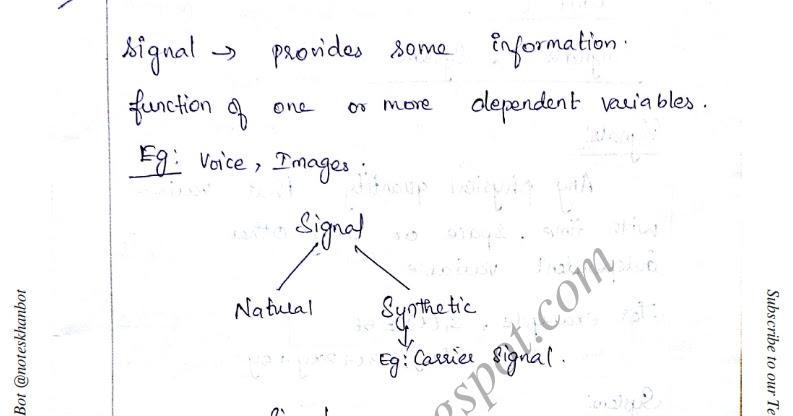 Signal → provides some information.
function of one or more dependent variables.
Eg: Voice, Images.
Signal
Natural Synthetic
Eg: Carrier Signal.
gspot.com
Bot @noteskhanbot
Subscribe to our Te